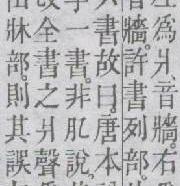 爲爿。音牆。右
牆。許書列部。
書故曰。唐本
一書。非肊說。
改全書之爿聲
牀部。則其誤